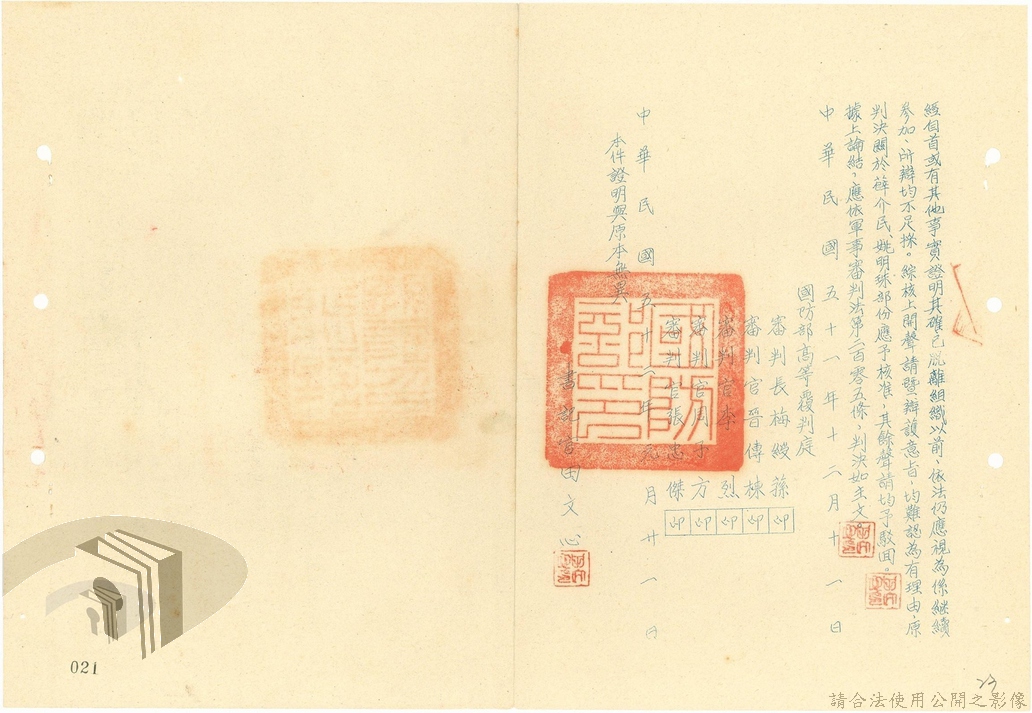 經自首或有其他事實證明其確已脫離組織以前,依法仍應視為係繼續
參加、所辯均不足採。綜核上開聲請暨辯護意旨,均難認為有理由,原
判決關於薛介民、姚明珠部份應予核准,其餘聲請均予駁回。
據上論結,應依軍事審判法第二百零五條,判決如主文
中華民國五十一年十二月十一日
國防部高等覆判庭
審判長梅綬蓀 印
審判官晉傳棟 印
審判官李烈 印
審判官周子方 印
審判官張忠傑 印
中華民國五十二年元月廿一日
本件證明與原本無異
書記官田文心
021
請合法使用公開之影像